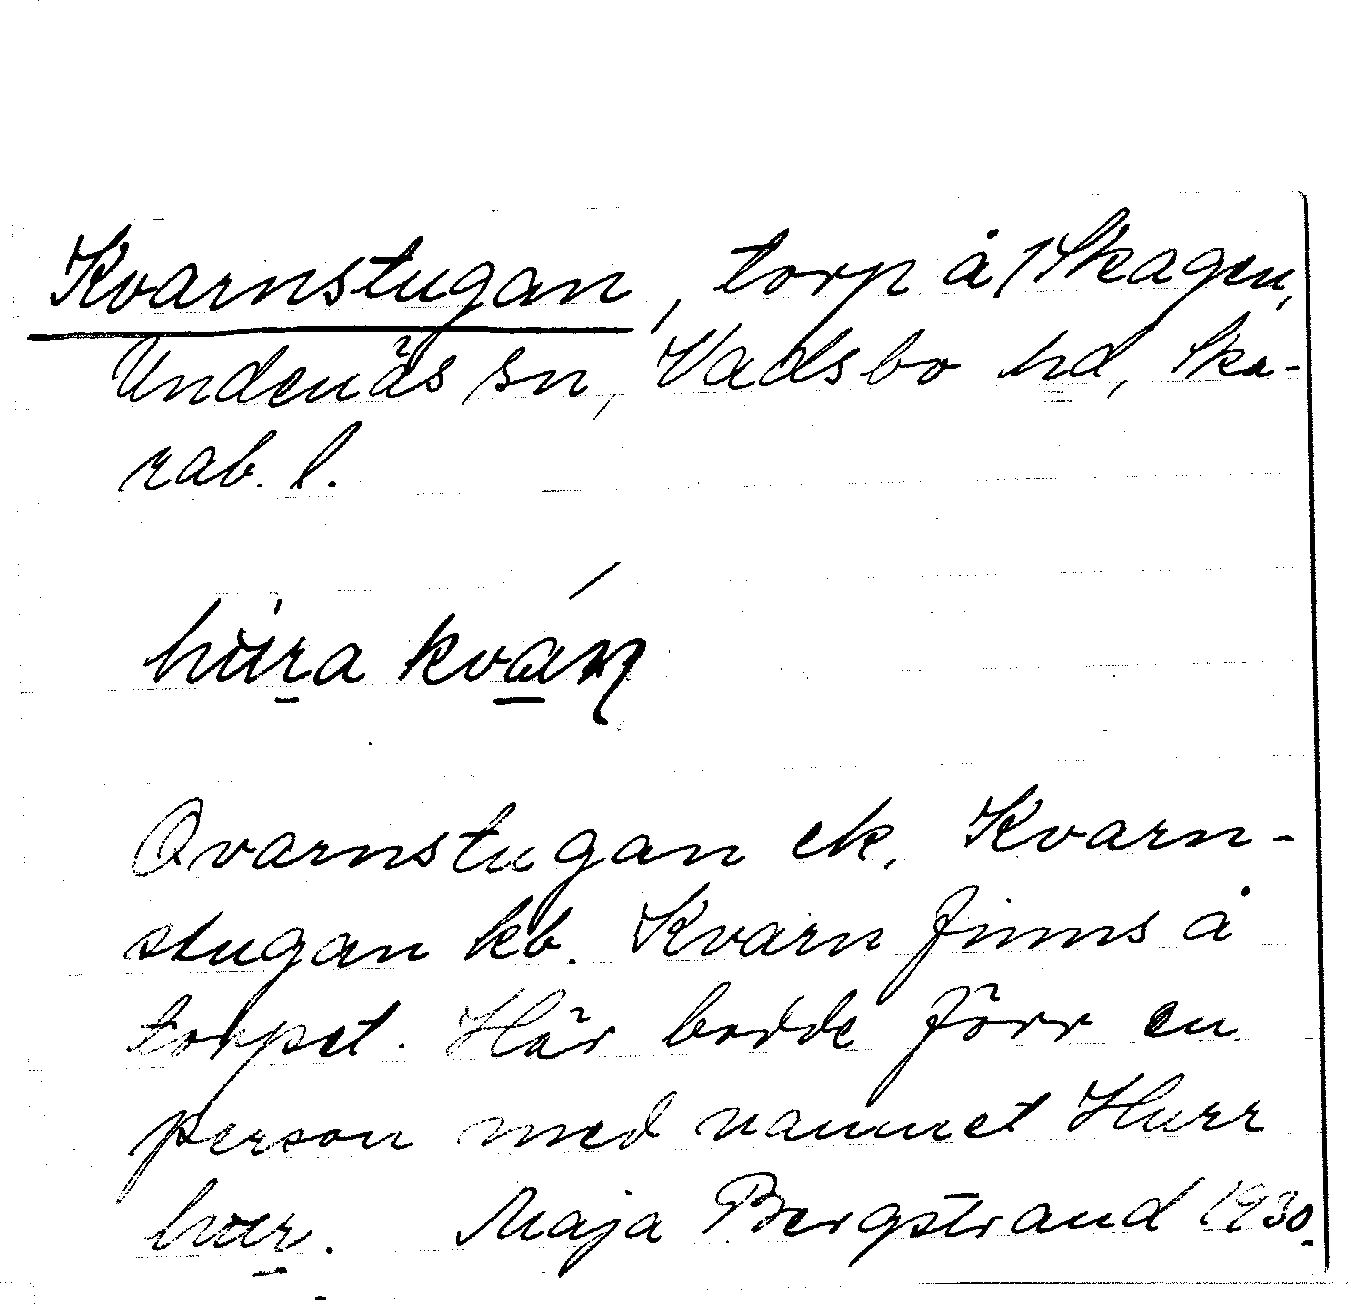 Kvarnstugan, torp å 1 Skagen,
Undenäs sn, Vadsbo hd, Ska-
rab. l.
kvárn
Qvarnstugan ek. Kvarn-
stugan kb. Kvarn finns å
torpet. Här bodde förr en
person med namnet Hurr
Maja Bergstrand 1930.